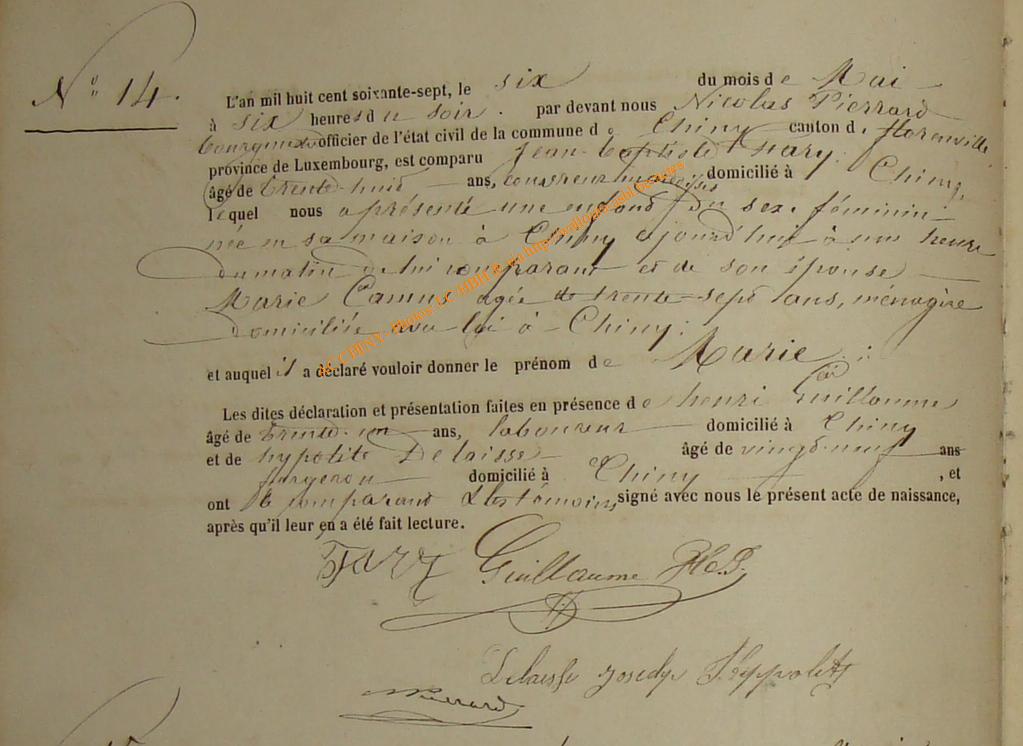 N° 14.
L'an mil huit cent soixante-sept, le six du mois de Mai
à six heures du soir. par devant nous Nicolas Pierrard
bourgmestre officier de l'état civil de la commune de Chiny canton de florenville
province de Luxembourg, est comparu Jean-baptiste
âgé de trente-huit ans, couvreur domicilié à Chiny,
lequel nous a présenté une enfant du sexe féminin
née en sa maison à Chiny ajourd'hui à une heure
du matin de lui comparant et de son épouse
Marie Camus agée de trente-sept ans, ménagère
domiciliée avec lui à Chiny;
et auquel il a déclaré vouloir donner le prénom de Marie
Les dites déclaration et présentation faites en présence de henri Guillaume
âgé de trente-un ans, laboureur domicilié à Chiny
et de hypolite Delaisse âgé de vingt-neuf ans
forgeron domicilié à Chiny, et
ont le comparant & les témoins signé avec nous le présent acte de naissance,
après qu'il leur en a été fait lecture.
Guillaume
Delaisse joseph hyppolite
Pierrard